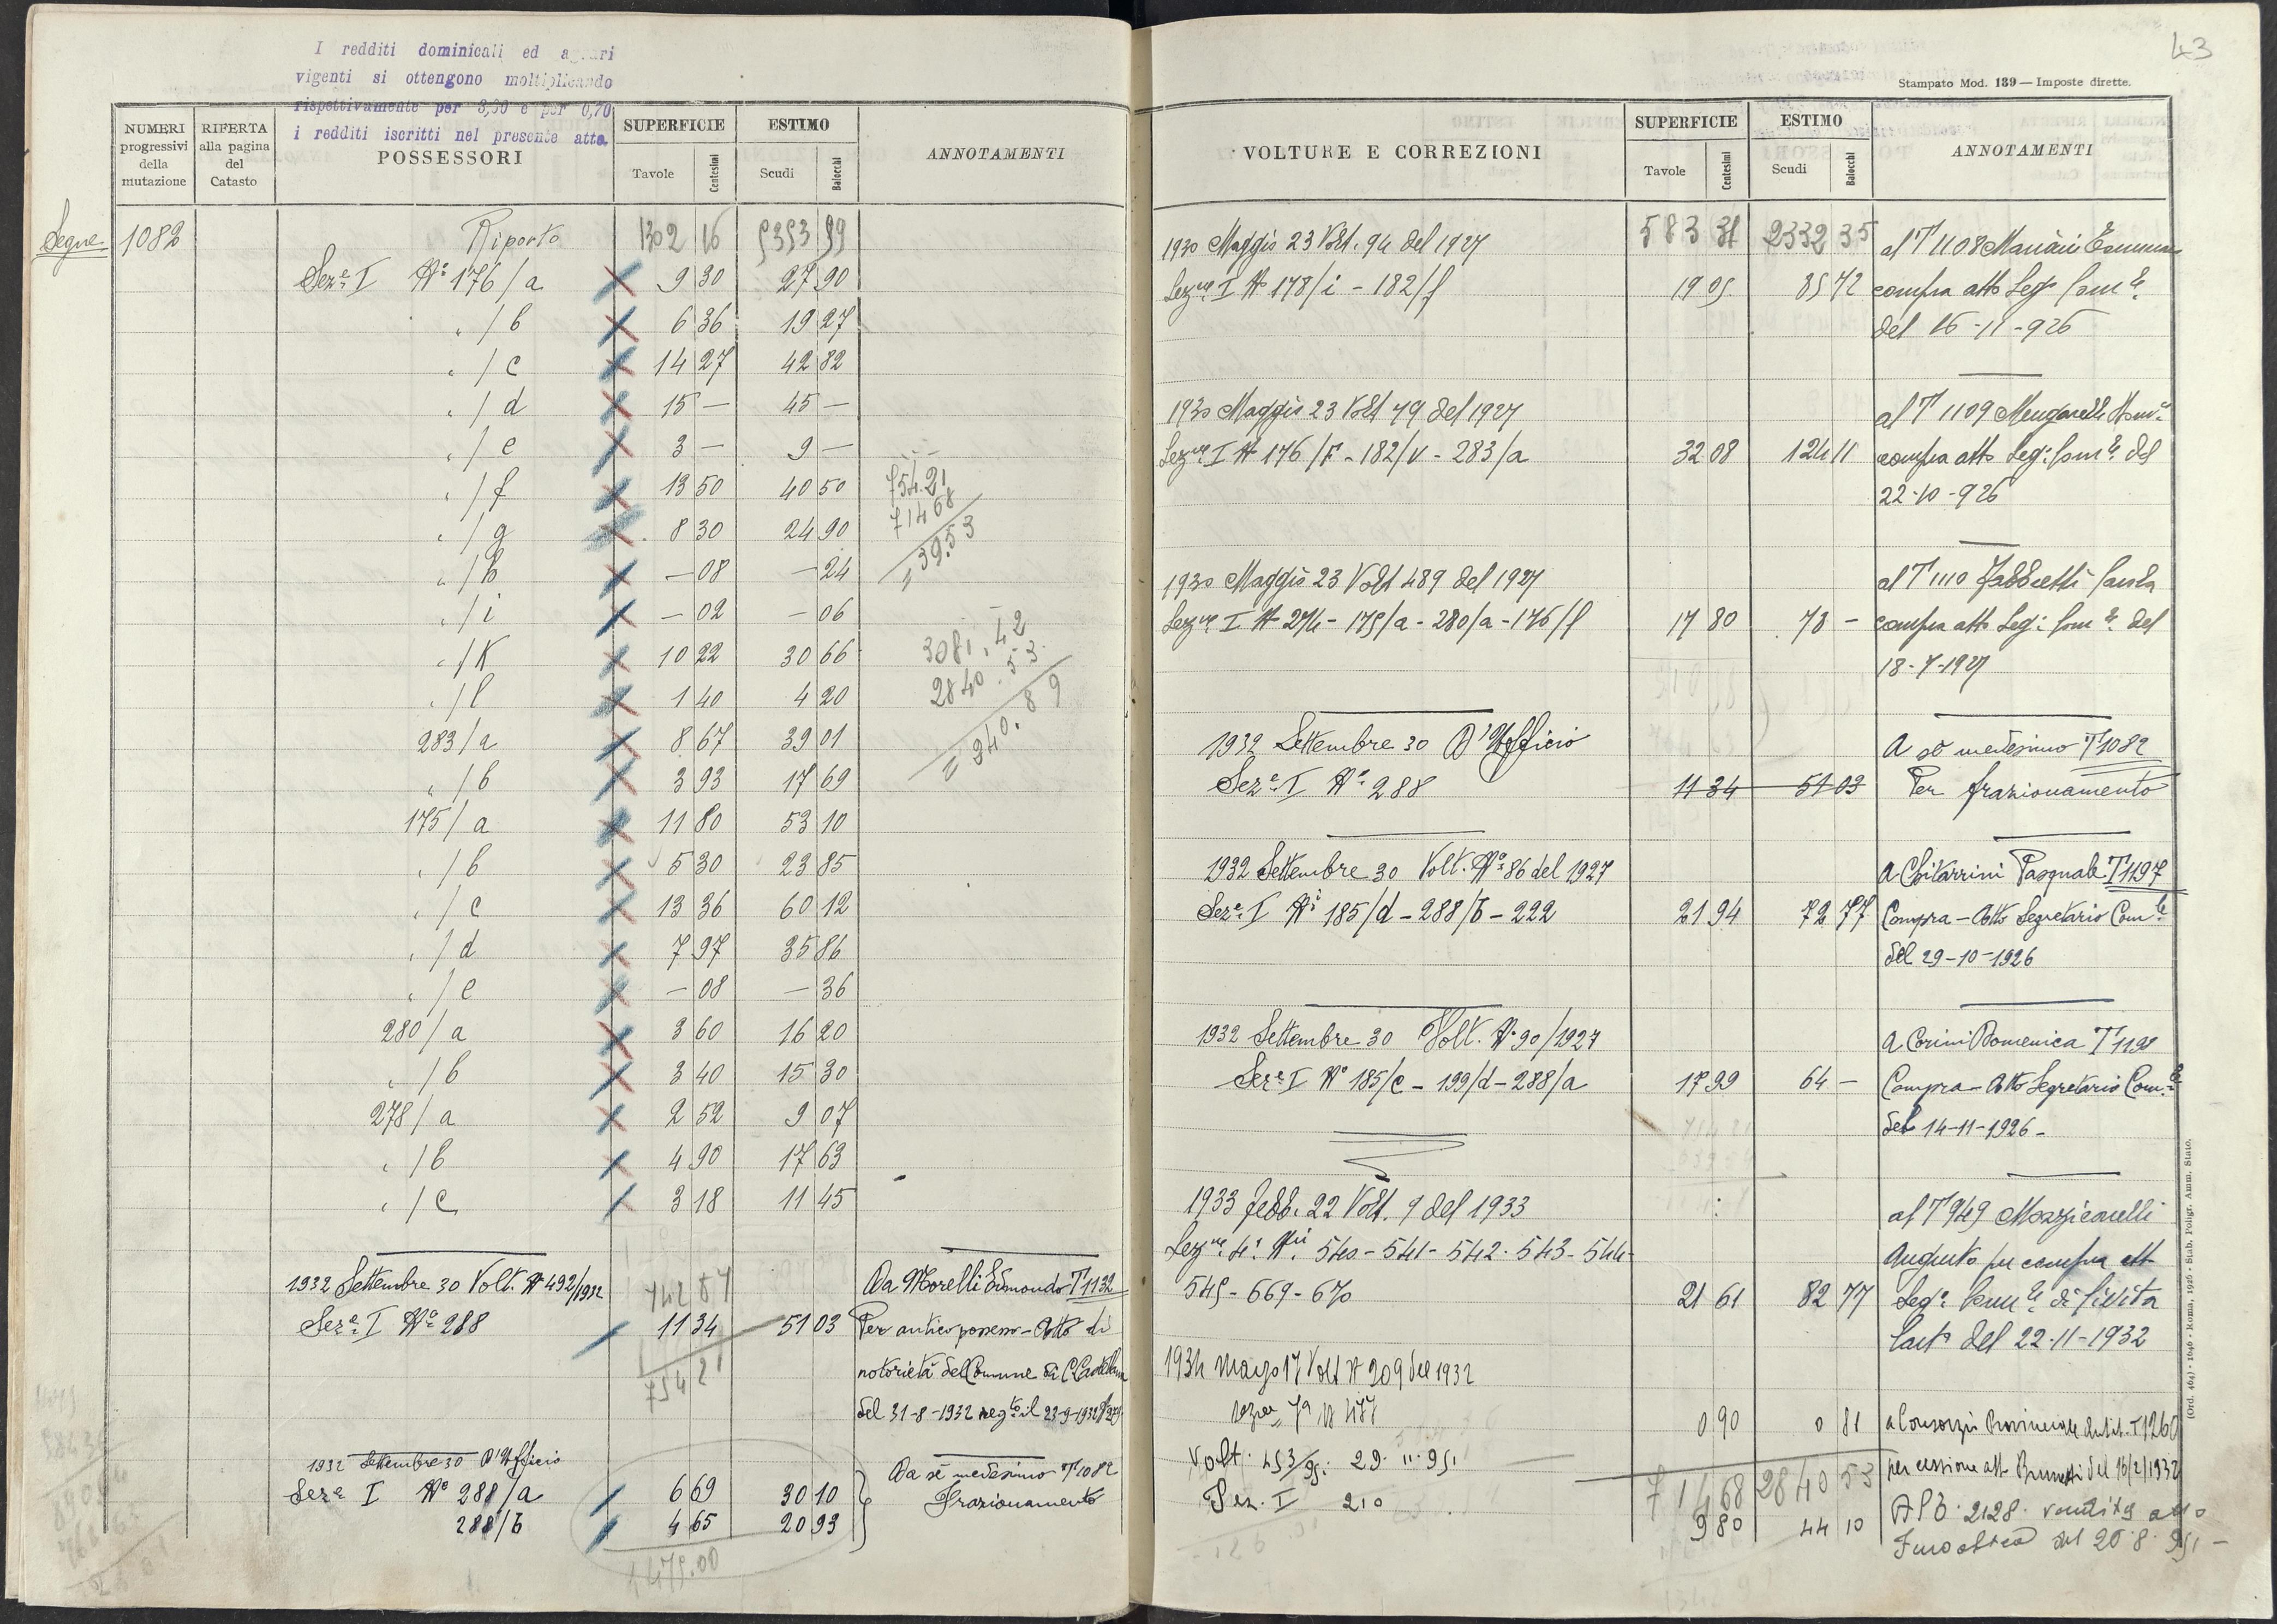 43
I redditi dominicali ed agrari
vigenti si ottengono moltiplicando
rispettivamente per 3,30 e per 0,70
i redditi iscritti nel presente atto.
NUMERI progressivi della mutazione
RIFERTA alla pagina del Catasto
POSSESSORI
SUPERFICIE Tavole Centesimi
ESTIMO Scudi Baiocchi
ANNOTAMENTI
Segue 1082 Riporto 1302 16 5353 99
Sez.e I N.o 176/a 9 30 27 90
" /b 6 36 19 27
" /c 14 27 42 82
" /d 15 — 45 —
" /e 3 — 9 —
" /f 13 50 40 50
" /g 8 30 24 90
" /h — 08 — 24
" /i — 02 — 06
" /K 10 22 30 66
" /l 1 40 4 20
283/a 8 67 39 01
" /b 3 93 17 69
175/a 11 80 53 10
" /b 5 30 23 85
" /c 13 36 60 12
" /d 7 97 35 86
" /e — 08 — 36
280/a 3 60 16 20
" /b 3 40 15 30
278/a 2 52 9 07
" /b 4 90 17 63
" /c 3 18 11 45
754.21
714 68
= 39.53
3081.42
2840.53
= 240.89
742 87
1932 Settembre 30 Volt. N 492/1932 Da Morelli Edmondo T 1132
Sez.e I N.o 288 11 34 51 03 Per antico possesso - Atto di
754 21 notorietà del Comune di C. Castellana
del 31-8-1932 reg.to il 23-9-1932
1932 Settembre 30 D'Ufficio Da sè medesimo T 1082
Sez.e I N.o 288/a 6 69 30 10 Frazionamento
288/b 4 65 20 93
1475.00
Stampato Mod. 139 — Imposte dirette.
VOLTURE E CORREZIONI
SUPERFICIE Tavole Centesimi
ESTIMO Scudi Baiocchi
ANNOTAMENTI
1930 Maggio 23 Volt. 94 del 1927 583 31 2332 35 al T 1108 Mancini
Sez.ne I N 178/i - 182/f 19 05 85 72 compra atto Seg. Com.le
del 16-11-926
1930 Maggio 23 Volt 79 del 1927 al T 1109 Mengarelli
Sez.ne I N 176/F - 182/v - 283/a 32 08 124 11 compra atto Seg. Com.le del
22-10-926
1930 Maggio 23 Volt 489 del 1927 al T 1110 Fabbretti
Sez.ne I N 274 - 175/a - 280/a - 176/f 17 80 73 — compra atto Seg. Com.le del
18-7-1927
1932 Settembre 30 D'Ufficio A sè medesimo T 1082
Sez.e I N.o 288 11 34 51 03 Per frazionamento
1932 Settembre 30 Volt. N.o 86 del 1927 A Chitarrini Pasquale T 1197
Sez.e I N.i 185/d - 288/b - 222 21 94 72 77 Compra - Atto Segretario Com.le
del 29-10-1926
1932 Settembre 30 Volt. N. 90/1927 A Corini Domenica T 1198
Sez.e I N.o 185/c - 199/d - 288/a 17 99 64 — Compra - Atto Segretario Com.le
del 14-11-1926 -
1933 Febb. 22 Volt. 9 del 1933 al T 949 Mozzicarelli
Sez.ne 4.a N.ri 540 - 541 - 542 - 543 - 544 - Augusto per compra atto
545 - 669 - 670 21 61 82 77 Seg.o Com.le di Civita
Cast. del 22-11-1932
1934 Marzo 17 Volt N 209 del 1932
Sez.ne 7a N 487 0 90 0 81 a Consorzio Provinciale T 1260
per cessione atto Brunetti del 16/2/1932
714 68 2840 53
Volt. 453/51. 29.11.951
Sez. I 210 9 80 44 10 APB 2128. vendita atto
del 20.8.951 -
(Ord. 464) - 1040 - Roma, 1926 - Stab. Poligr. Amm. Stato.